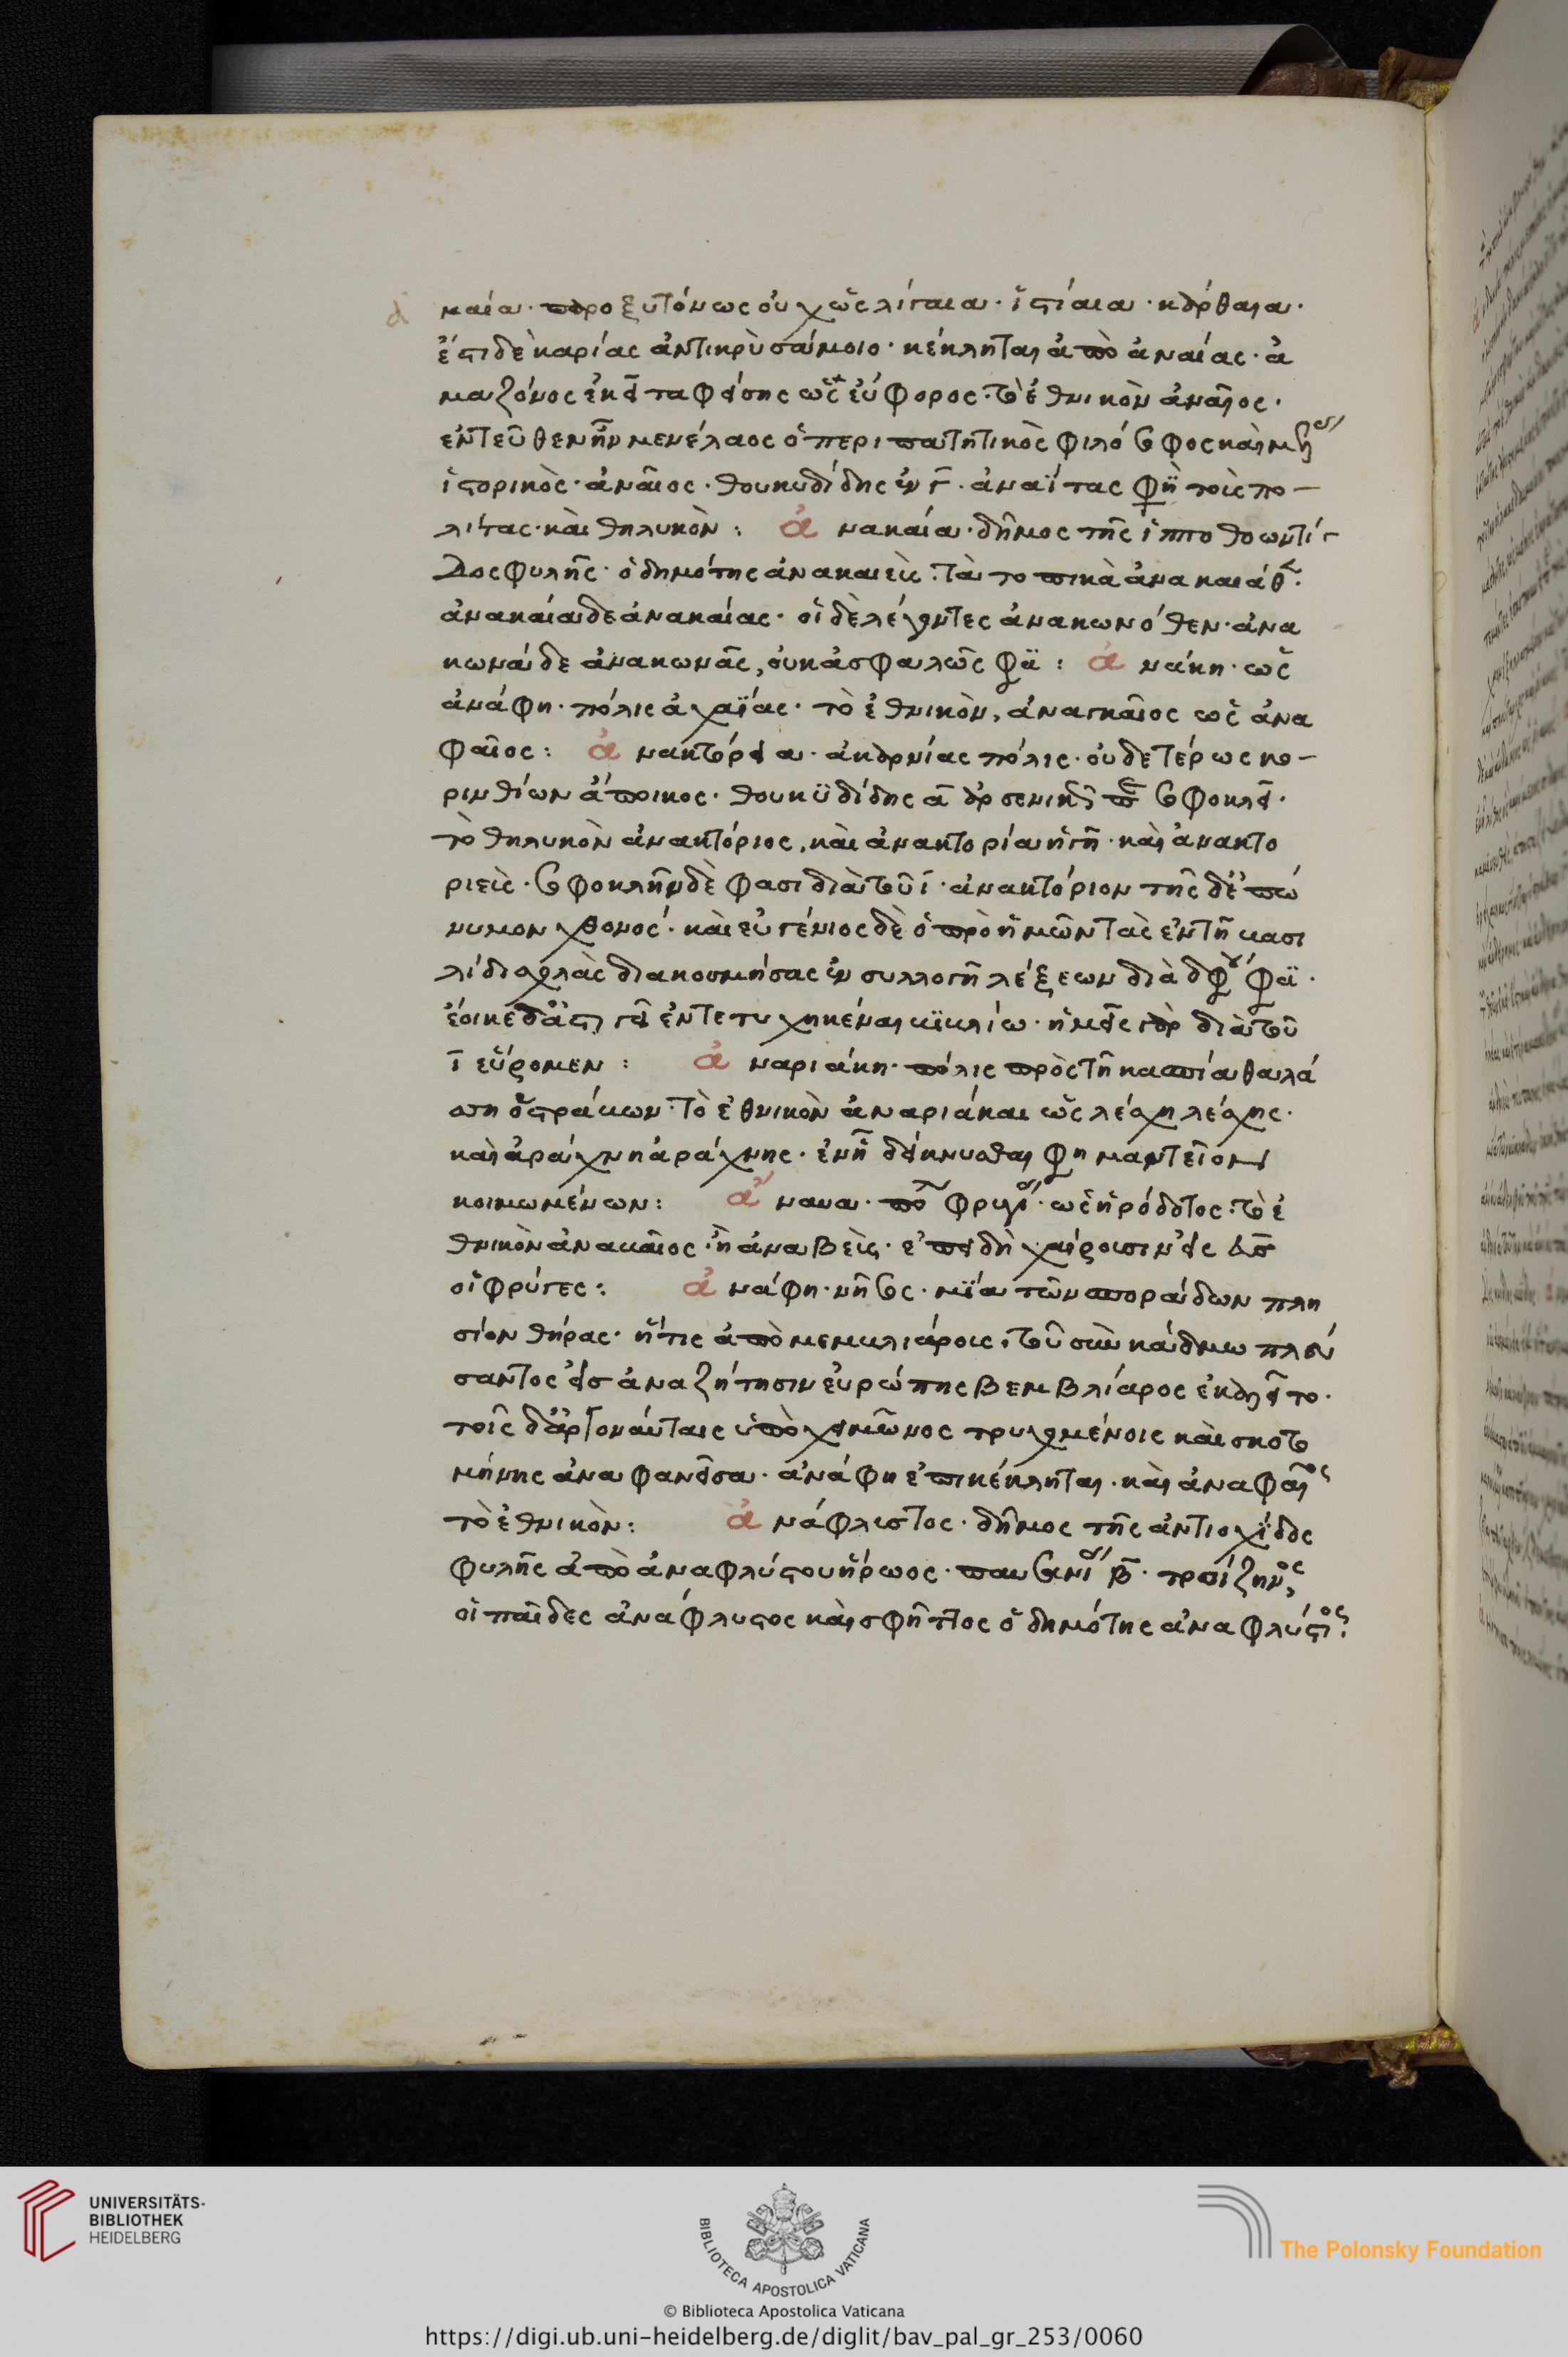 ναία· προξυτόνως οὐχ ὡς λίταια· ἱστίαια· κάρθαια·
ἔστι δὲ καρίας ἀντικρὺ σάμοιο· κέκληται ἀπὸ ἀναίας· ἀ
μαζόνος ἐκεῖ ταφείσης ὡς εὔφορος· τὸ ἐθνικὸν ἀναῖος·
ἐντεῦθεν ἦν μενέλαος ὁ περιπατητικὸς φιλόσοφος καὶ
ἱστορικὸς· ἀναῖος· θουκυδίδης ἐν γ· ἀναΐτας φη τοὶς πο
λίτας· καὶ θηλυκὸν: ἀ νακαία· δῆμος τῆς ἱπποθοωντί
δος φυλῆς· ὁ δημότης ἀνακαιεὺς· τὰ τοπικὰ ἀνακαιάθ
ἀνακαίαιδε ἀνακαίας· οἱ δὲ λέγοντες ἀνακωνόθεν· ἀνα
κωνάιδε ἀνακωνᾶς, οὐκ ἀσφαλῶς φα: ἀ νάκη· ὡς
ἀνάφη· πόλις ἀχαΐας· τὸ ἐθνικὸν, ἀναγκαῖος ὡς ἀνα
φαῖος: ἀ νακτόρεια· ἀκαρνίας πόλις· οὐδετέρως κο
ρινθίων ἄποικος· θουκϋδίδης α ἀρσενικ π σοφοκλεῖ·
τὸ θηλυκὸν ἀνακτόριος, καὶ ἀνακτορία ἡ γῆ· καὶ ἀνακτο
ριεὶς· σοφοκλῆν δὲ φασι διὰ τοῦ ι· ἀνακτόριον τῆς δ' ἐπώ
νυμον χθονός· καὶ εὐγένιος δὲ ὁ πρὸ ἡμῶν τὰς ἐν τῆ κασι
λίδι σχολὰς διακοσμήσας ἐν συλλογῆ λέξεων διὰ δφ φα·
ἔοικε δ' ἀστ γεῖ ἐντετυχηκέναι κϊκλίω· ἡμεῖς γὰρ διὰ τοῦ
ι εὕρομεν: ἀ ναριάκη· πόλις πρὸς τῆ κασπία θαλά
σση ὑστράκων· τὸ ἐθνικὸν ἀναριάκαι ὡς λέσχη λέσχης·
καὶ ἀράχνη ἀράχνης· ἐνῆ δείκνυσθαι φη μαντεῖον
κοιμωμένων: ἄ ναυα· πο φρυγί· ὡς ἡρόδοτος· τὸ ἐ
θνικὸν ἀνακαῖος· ἢ ἀναβεὶς· ἐπειδὴ χαίρουσιν
οἱ φρύγες: ἀ νάφη· νῆσος· μϊία τῶν σποράδων πλη
σίον θήρας· ἥτις ἀπὸ μεμκλιάροις, τοῦ σὺν κάδμω πλεύ
σαντος εἰσ ἀναζήτησιν εὐρώπης βεμβλίαρος ἐκαλεῖτο·
τοῖς δ' ἀργοναύταις ὑπὸ χειμῶνος τρυχομένοις καὶ σκοτο
μήνης ἀναφανεῖσα· ἀνάφη ἐπικέκληται· καὶ ἀναφαῖος
τὸ ἐθνικὸν: ἀ νάφλυστος· δῆμος τῆς ἀντιοχίδος
φυλῆς ἀπὸ ἀναφλύστου ἥρωος· παυσανί β· τροίζηνος
οἱ παῖδες ἀνάφλυστος καὶ σφῆττος ὁ δημότης ἀναφλύστιος:
UNIVERSITÄTS-
BIBLIOTHEK
HEIDELBERG
BIBLIOTECA APOSTOLICA VATICANA
The Polonsky Foundation
© Biblioteca Apostolica Vaticana
https://digi.ub.uni-heidelberg.de/diglit/bav_pal_gr_253/0060